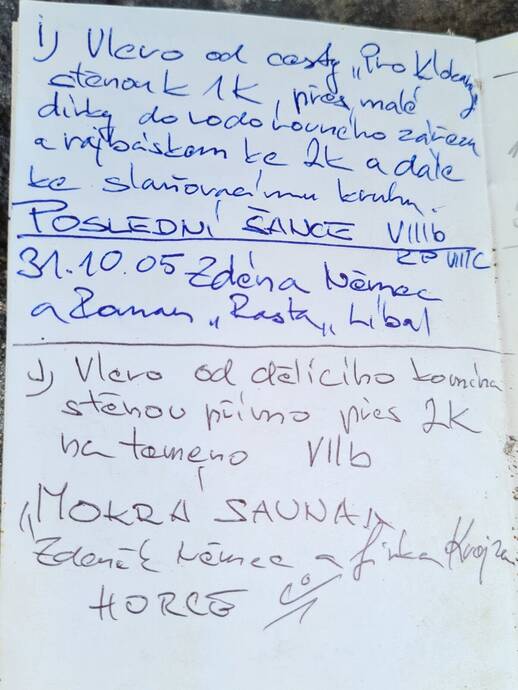 i) Vlevo od cesty „Pro Klokany
stěnou k 1K, přes malé
dírky do vodorovného zářezu
a rajbáskem ke 2K a dále
ke slaňovacímu kruhu.
POSLEDNÍ ŠANCE VIIIb
RP VIIIC
31.10.05 Zděna Němec
a Roman „Rasta„ Líbal
J) Vlevo od dělícího komína
stěnou přímo přes 2K
na temeno VIIb
„MOKRÁ SAUNA„
Zdeněk Němec a Jirka
HORCE